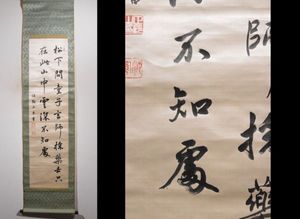 松下問童子言師採藥去只
在此山中雲深不知處
不知處
師採藥